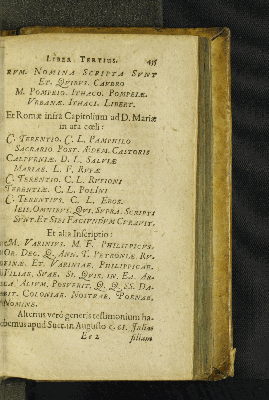 LIBER TERTIUS. 435
RVM. NOMINA SCRIPTA SVNT
ET. QVIBUS. CAVERO
M. POMPEIO. IPHACO. POMPEIÆ.
VRBANÆ. IPHACI. LIBERT.
Et Romæ infra Capitolium ad D. Mariæ
in ara cœli:
C. TERENTIO. C. L. PAMPHILO
SACRARIO. POST. ÆDEM. CASTORIS
CALPVRNIÆ. D. L. SALVIÆ
MARIAE. L. F. RVFÆ
C. TERENTIO. C. L. RVFIONI
TERENTIÆ. C. L. POLINI
C. TERENTIVS. C. L. EROS.
IEIS. OMNIBVS. QVI. SVPRA. SCRIPTI
SVNT. ET SIBI FACIVNDVM CVRAVIT.
Et alia Inscriptio:
M. VARINIVS. M. F. PHILIPPICVS.
DEC. Q. ANN. T. PETRONIÆ. RV-
FINÆ. ET. VARINIAE. PHILIPPICAE.
FILIAE. SVAE. SI. QVIS. IN. EA. AR-
ALIVM. POSVERIT. Q. Q. SS. DA-
BIT. COLONIAE. NOSTRAE. POENAE.
NOMINE.
Alterius verò generis testimonium ha-
bemus apud Suet. in Augusto c. 61. Julia
Ee 2 filiam